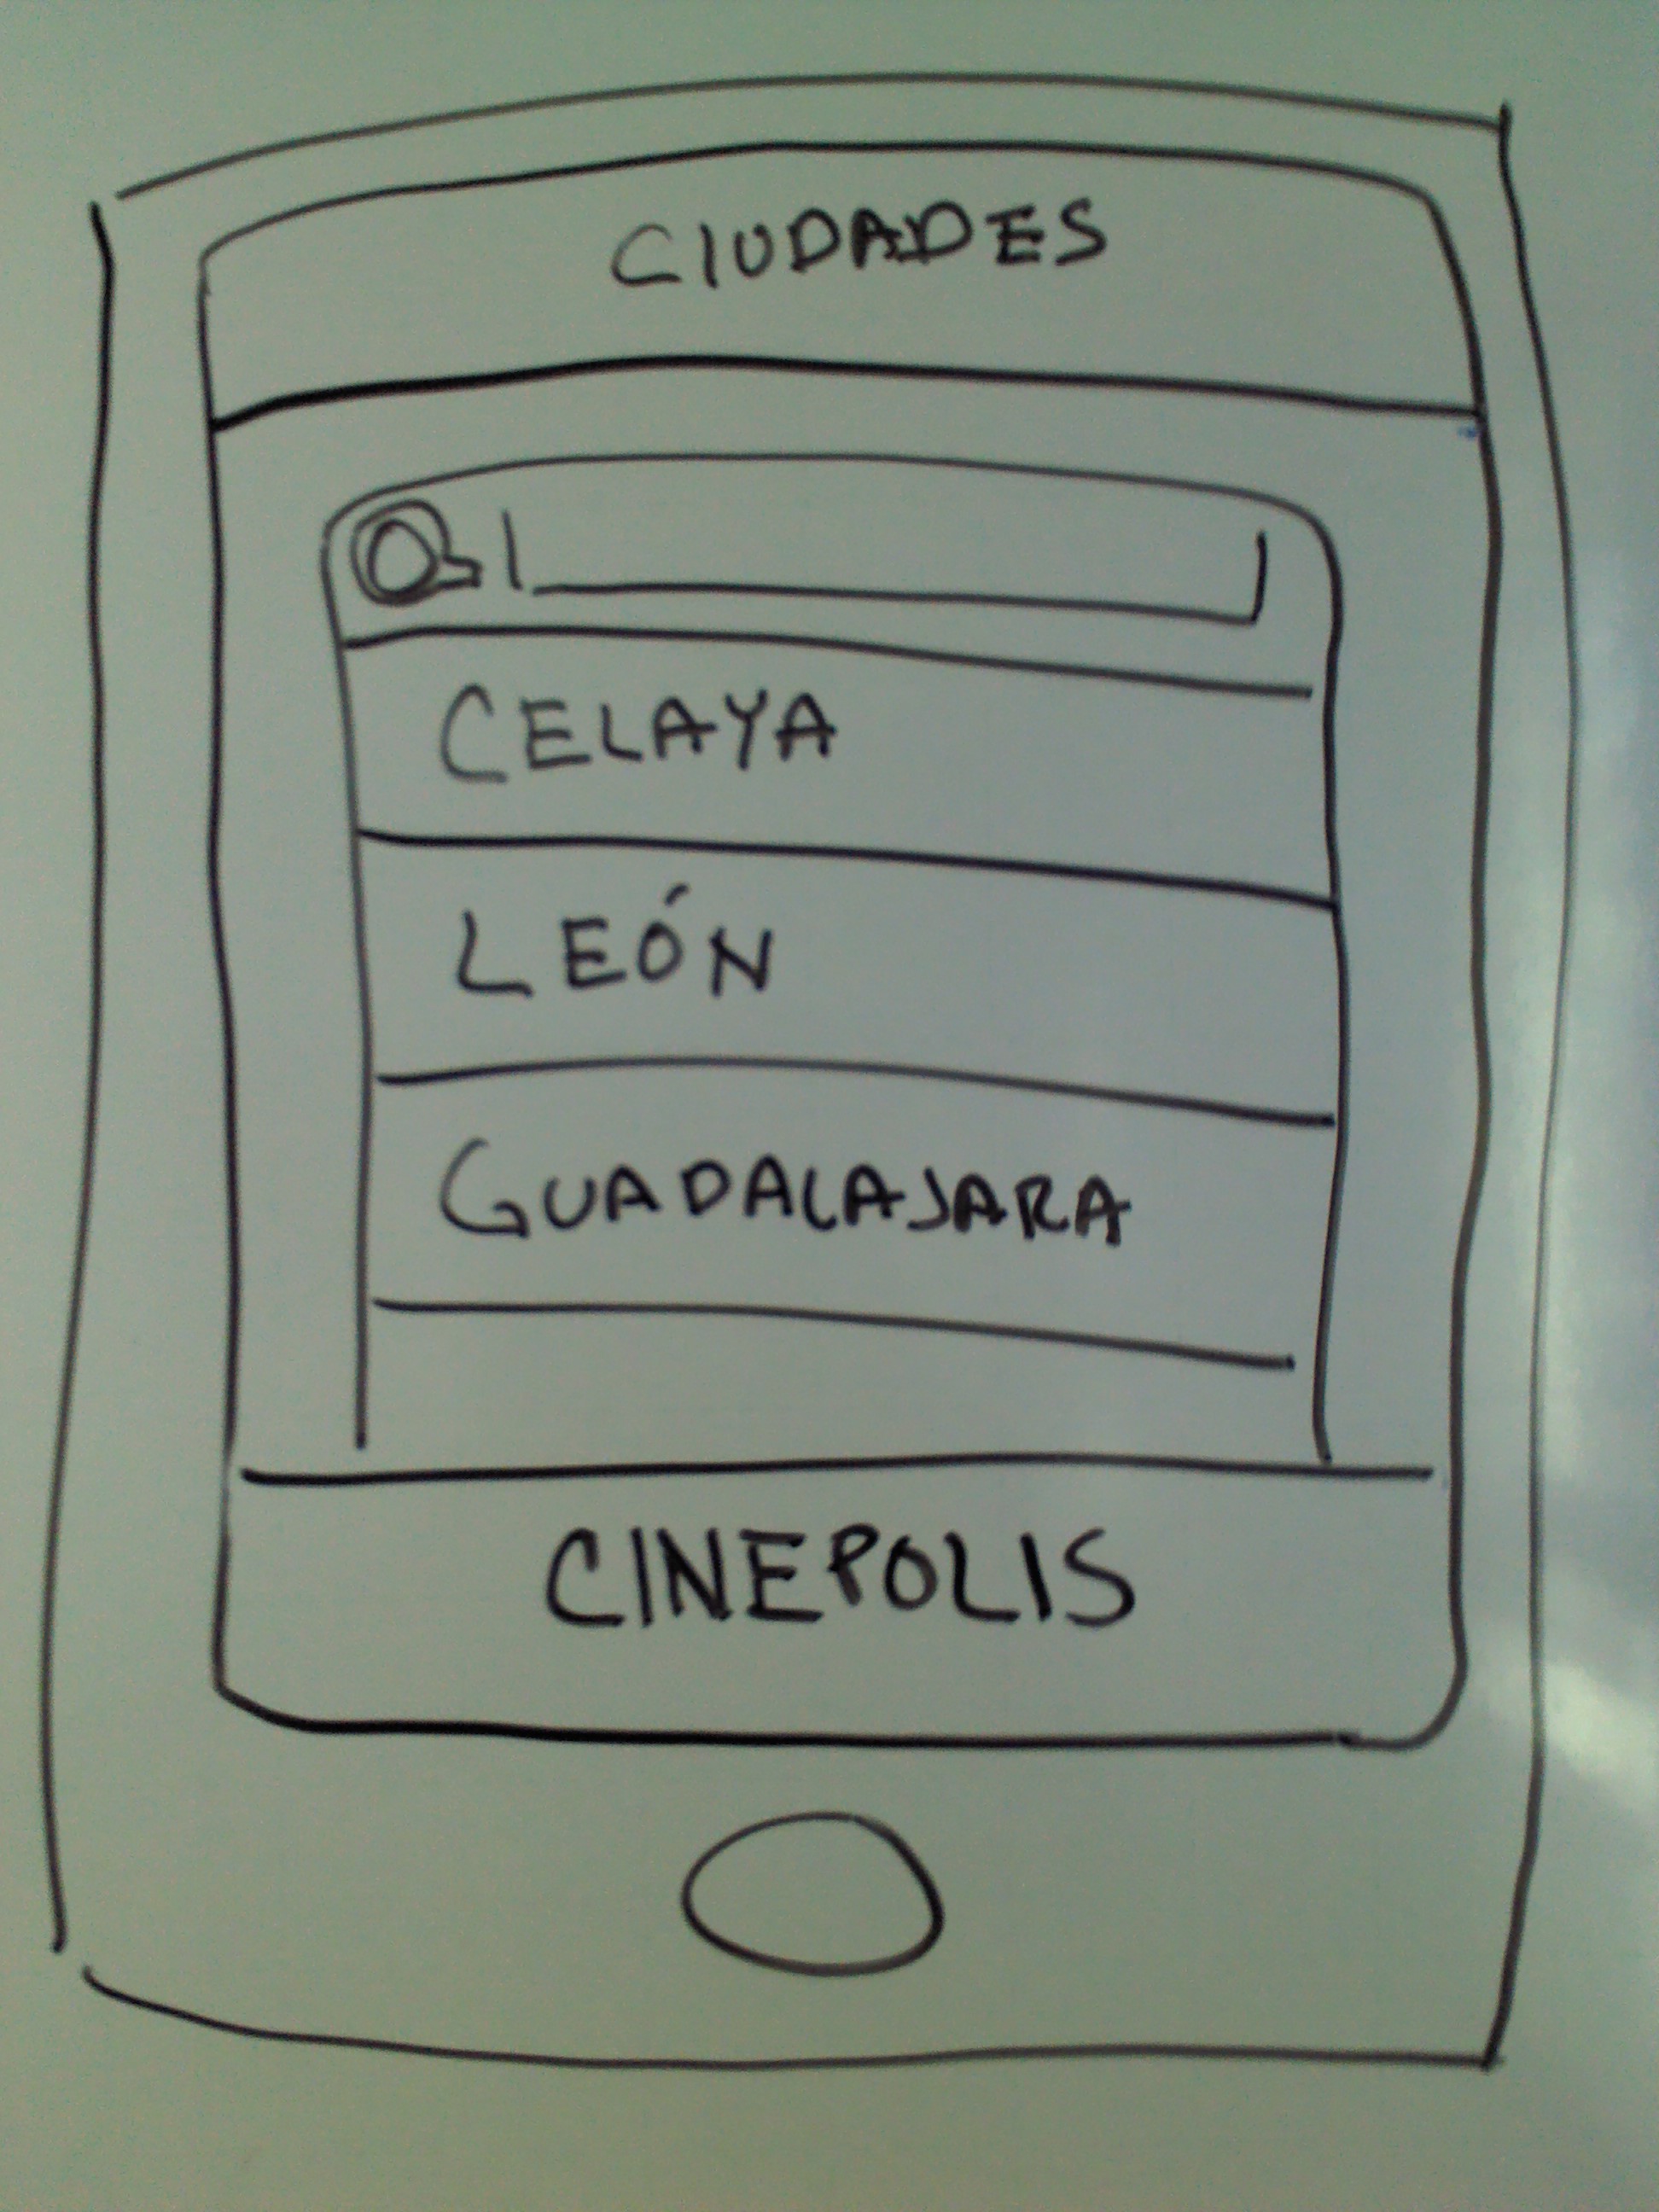 CIUDADES
CELAYA
LEÓN
GUADALAJARA
CINEPOLIS